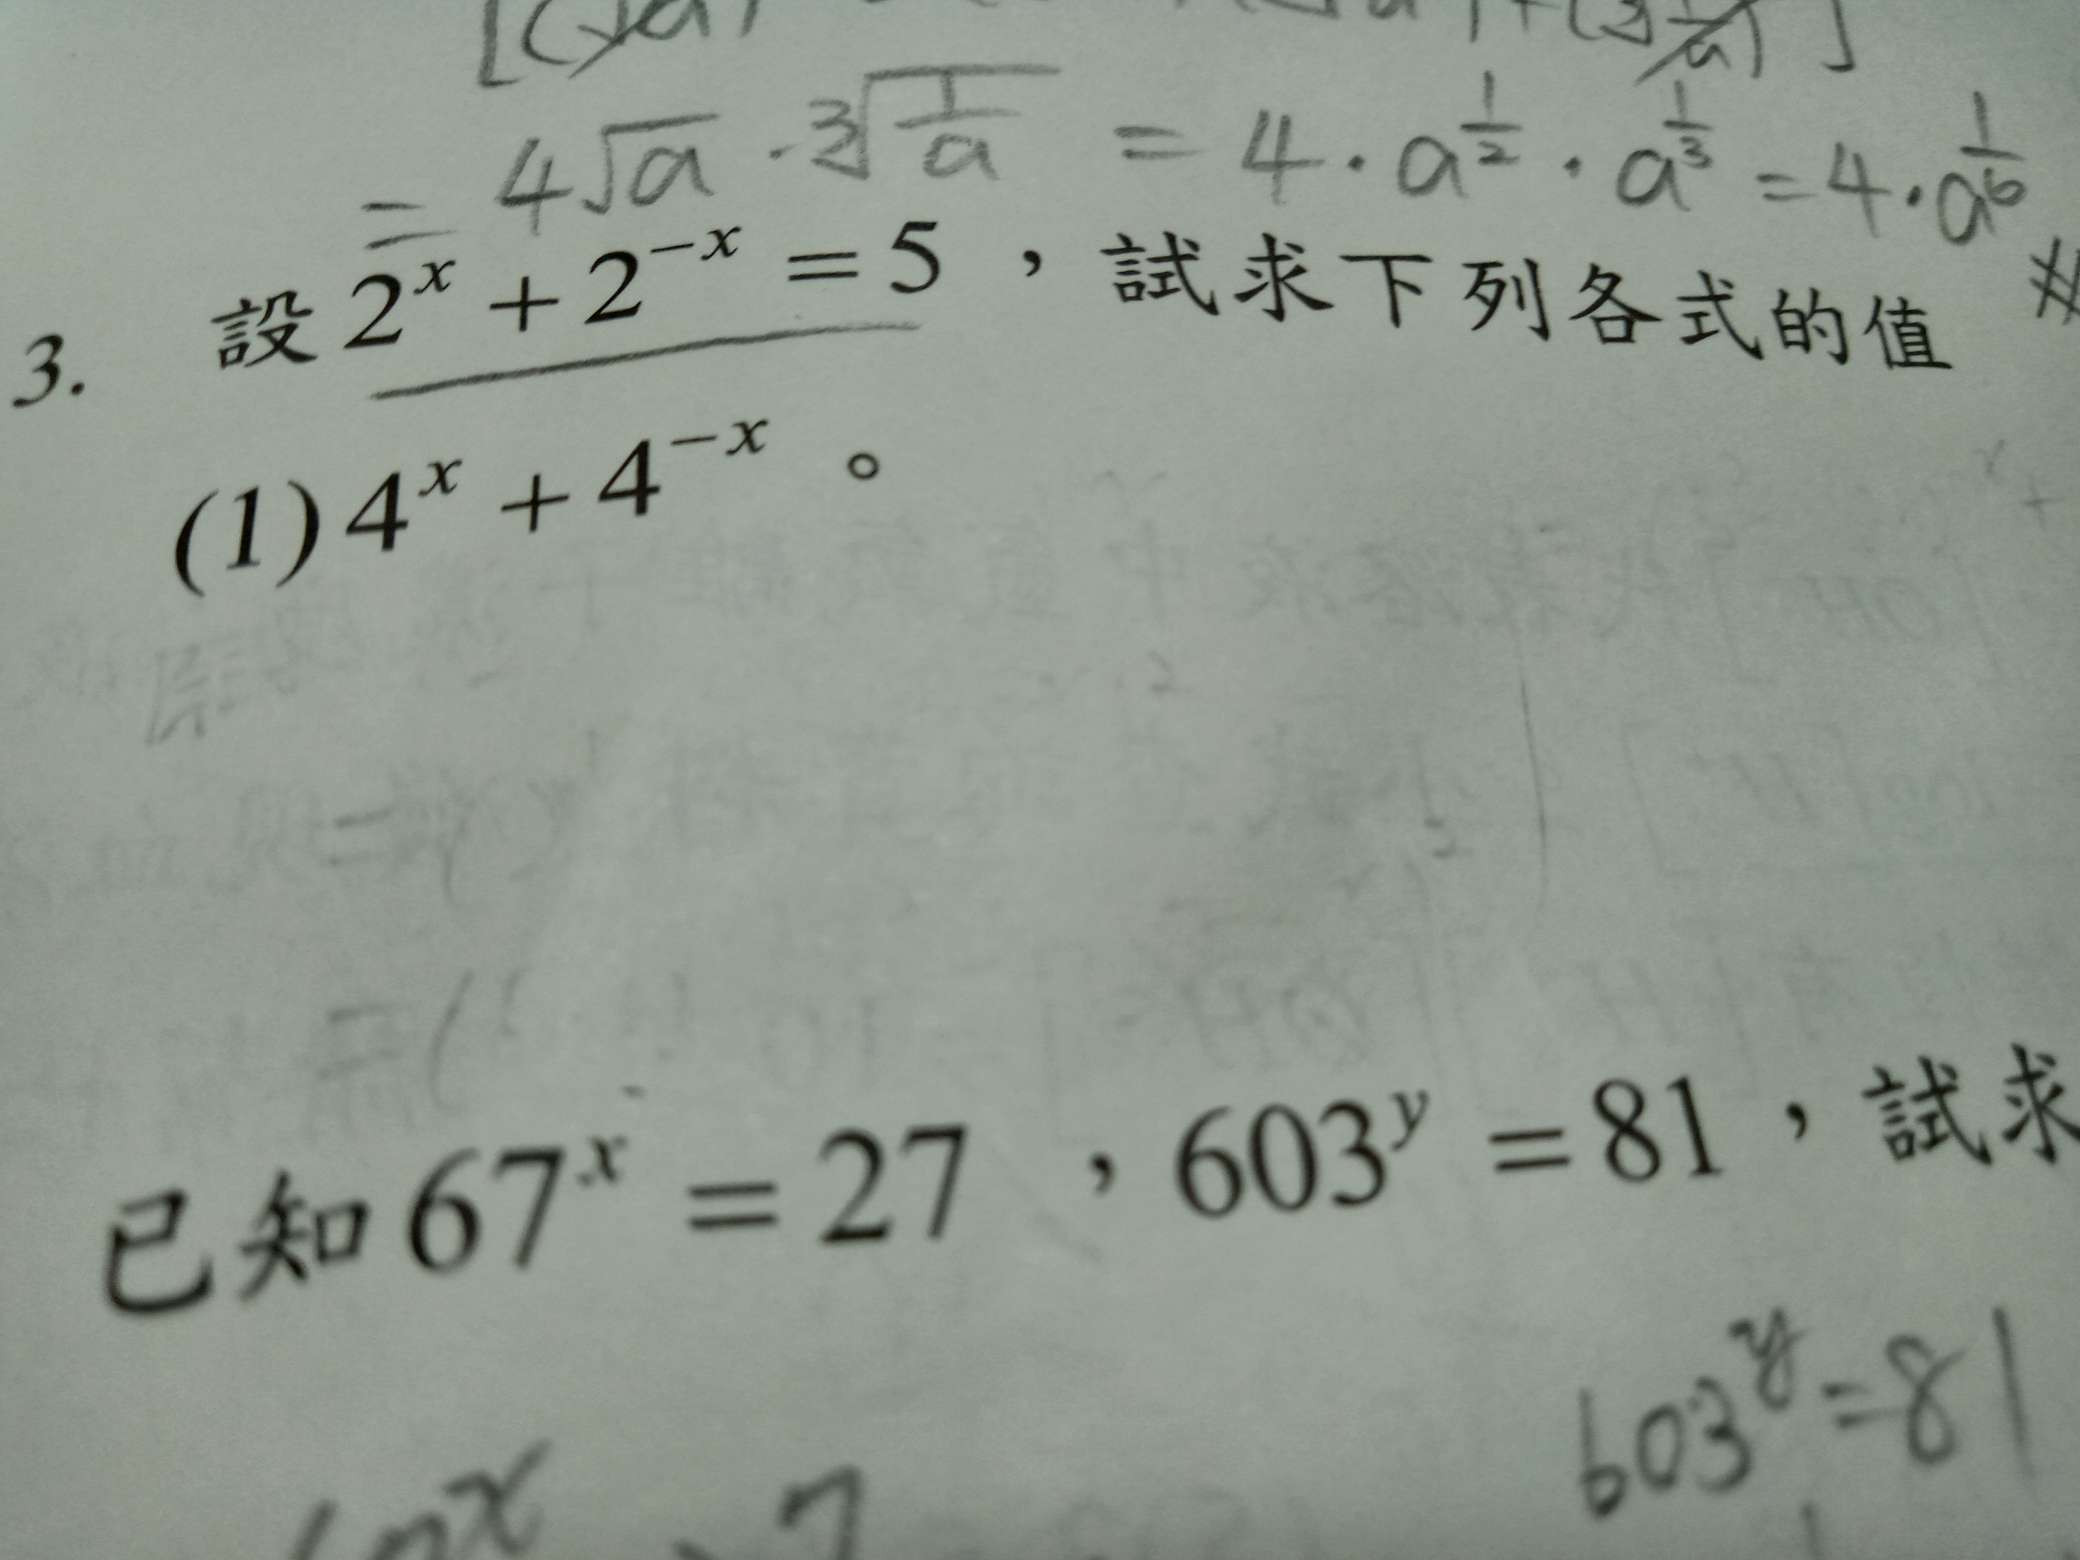 = 4√a · ³√(1/a) = 4 · a^(1/2) · a^(1/3) = 4 · a^(1/6) #
3. 設 2^x + 2^(-x) = 5 ，試求下列各式的值
(1) 4^x + 4^(-x) 。
已知 67^x = 27 ，603^y = 81 ，試求
603^y = 81